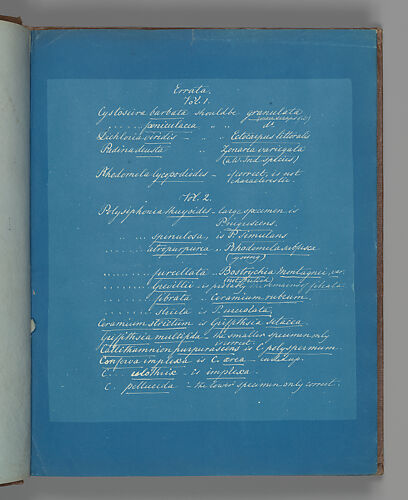 Errata.
Vol. 1.
Cystoseira barbata should be granulata
. . . . . . fœniculacea " " do
Dichloria viridis " Ectocarpus littoralis
Padina deusta " Zonaria variegata
(a W. Ind. species)
Rhodomela lycopodioides - if correct, is not
characteristic.
Vol. 2.
Polysiphonia thuyoides - large specimen is
P. nigrescens.
. . . . . . spinulosa, is P. simulans
. . . . . . atropurpurea " Rhodomela subfusca
(young)
. . . . . . . furcellata - Bostrychia Montagnei, var.
(not British)
. . . . . . . Grevillii is probably remains of
. . . . . . . fibrata " Ceramium rubrum.
. . . . . . . stricta is P. urceolata
Ceramium strictum is Griffithsia setacea.
Griffithsia multifida - the smaller specimen only
correct.
Callithamnion purpurascens is C. polyspermum.
Conferva implexa is C. ærea
C. ulothrix - is implexa.
C. pellucida - the lower specimen only correct.